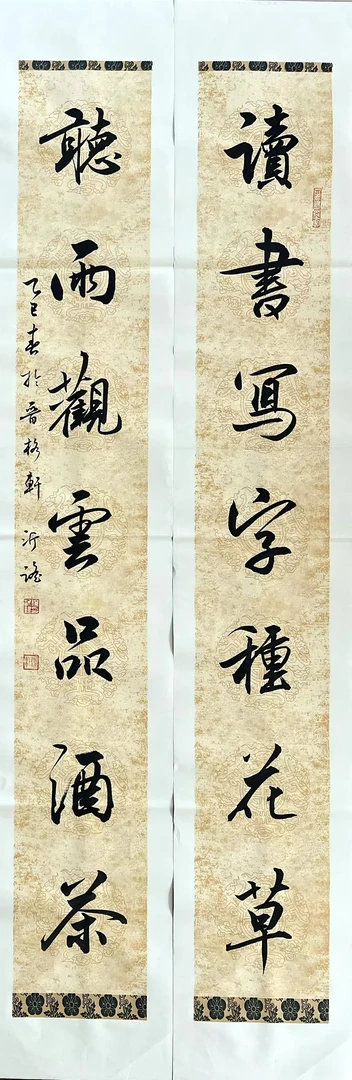 讀書寫字種花草
聽雨觀雲品酒茶
乙巳春於晋格軒 沂謠